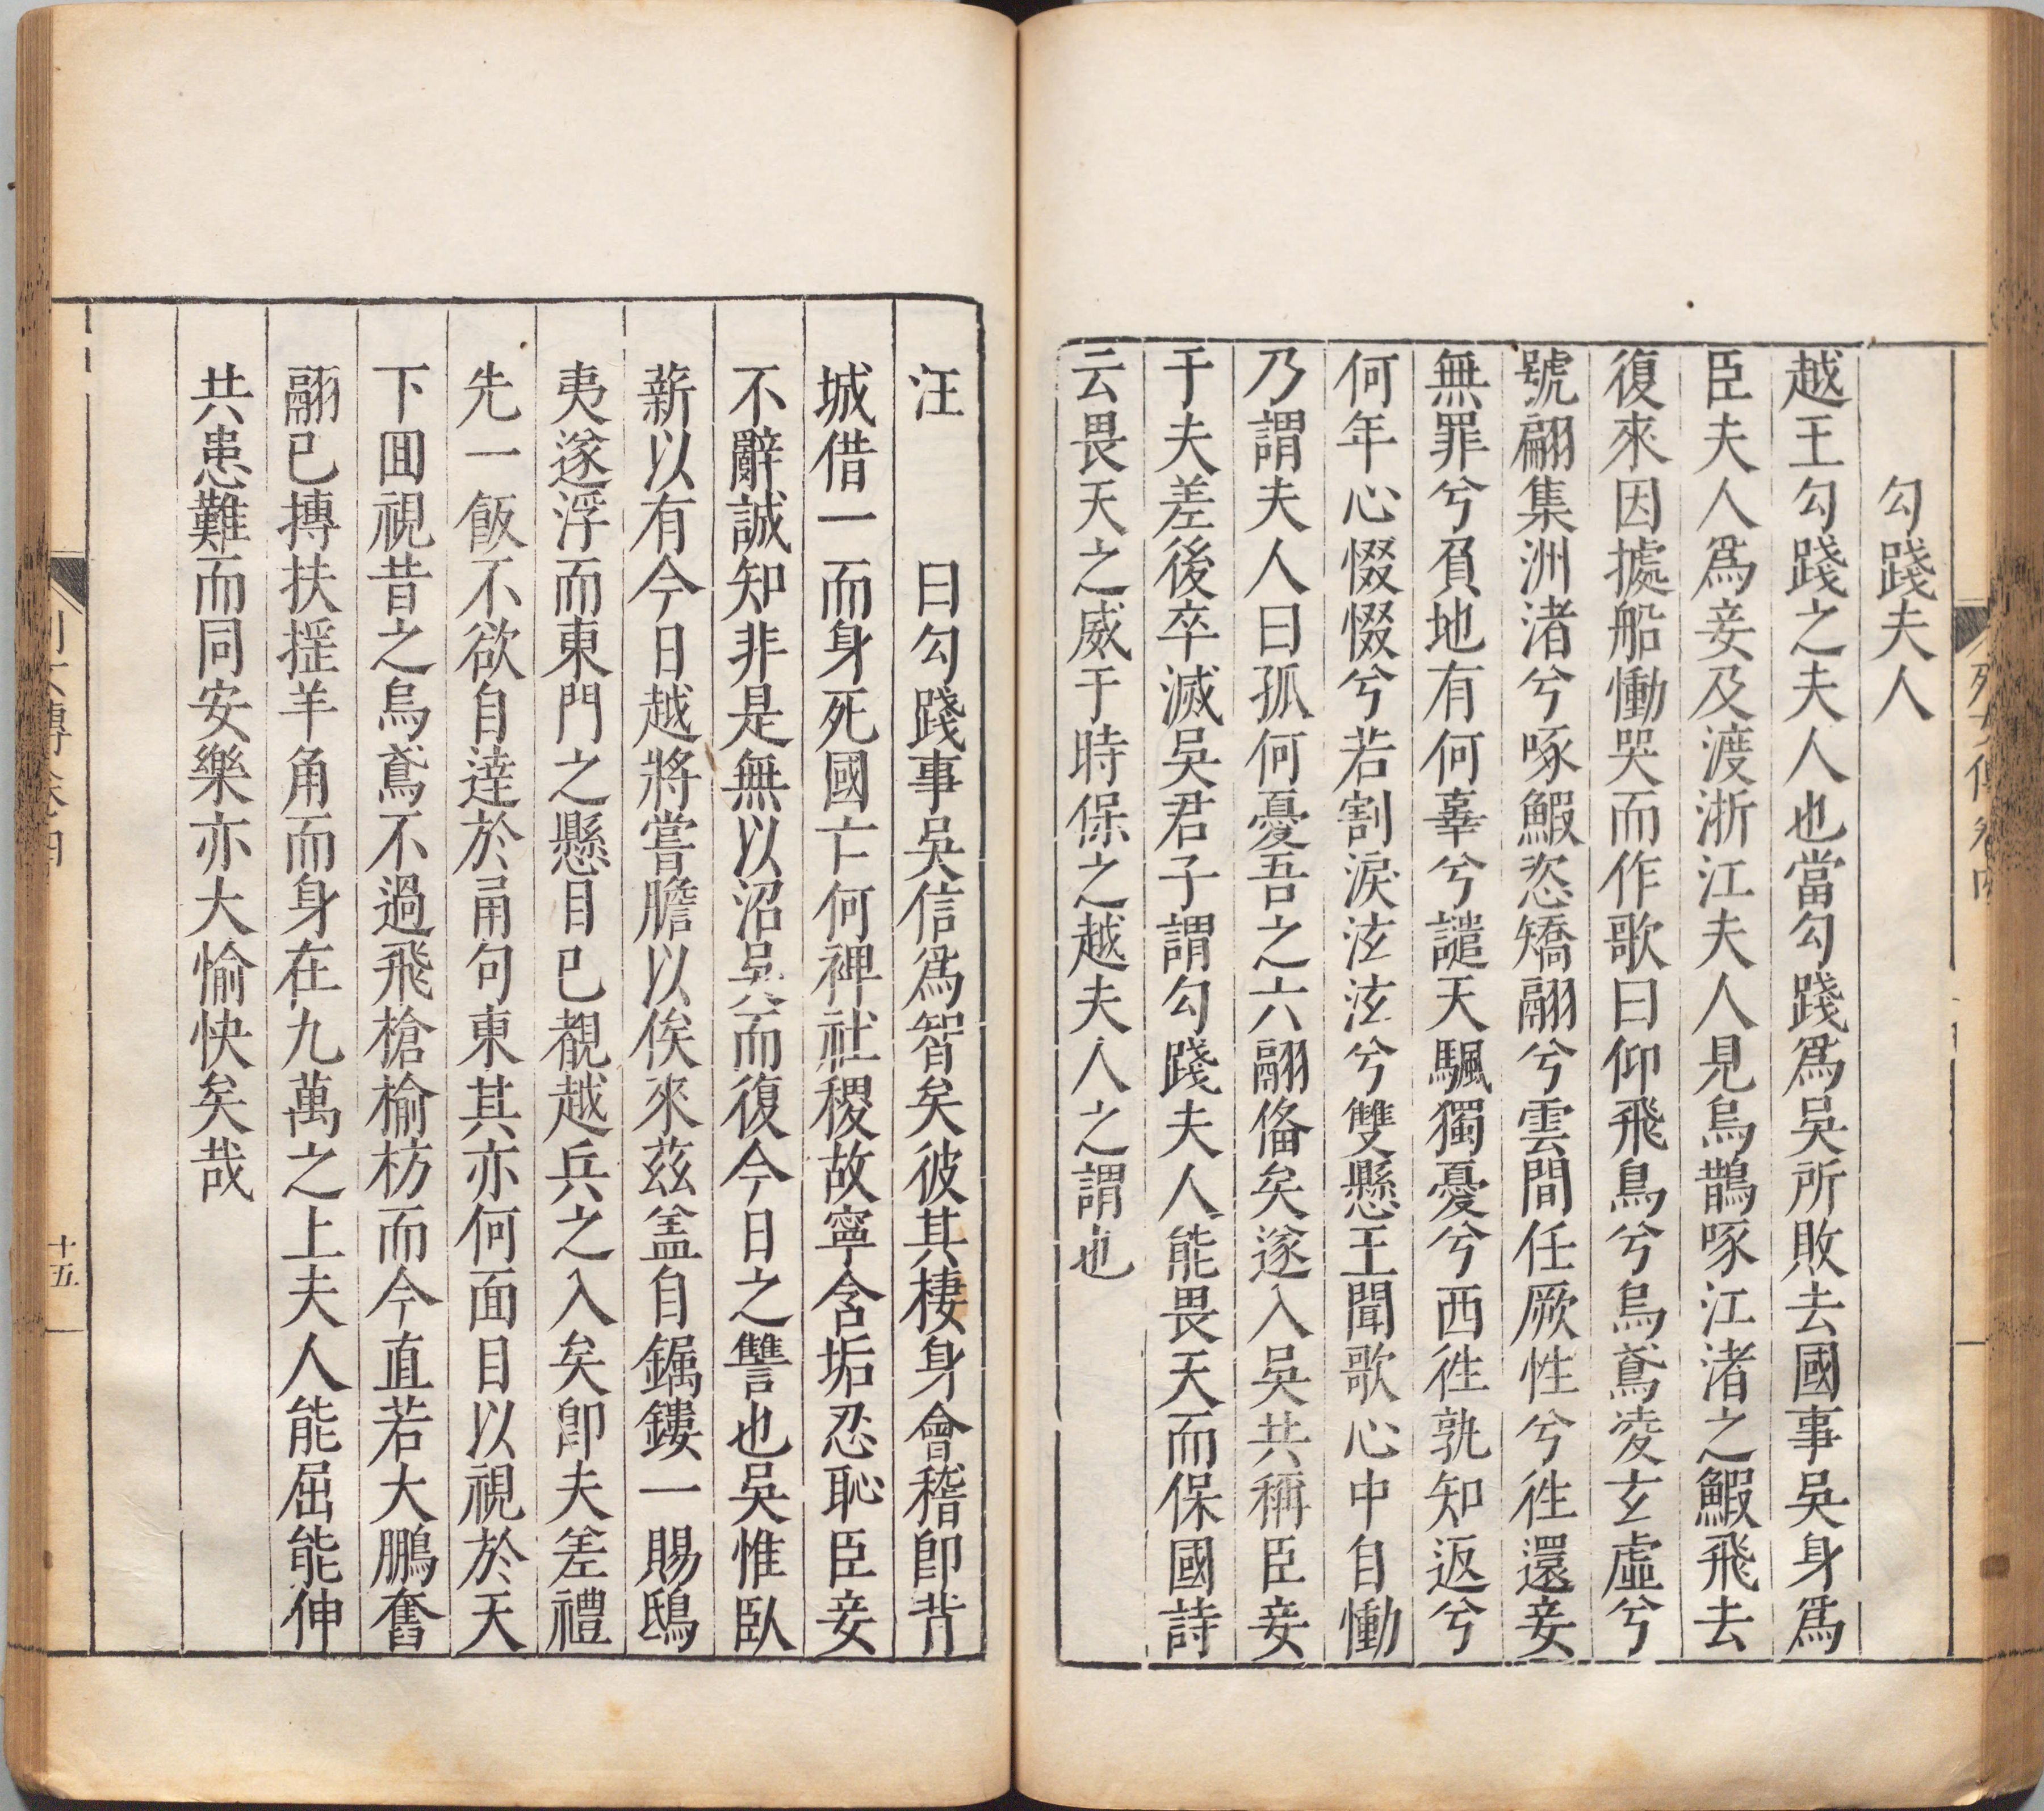 勾踐夫人
越王勾踐之夫人也當勾踐爲吳所敗去國事吳身爲
臣夫人爲妾及渡浙江夫人見烏鵲啄江渚之鰕飛去
復來因據船慟哭而作歌曰仰飛鳥兮烏鳶凌玄虛兮
號翩集洲渚兮啄鰕恣矯翮兮雲間任厥性兮徃還妾
無罪兮負地有何辜兮譴天颿獨憂兮西徃孰知返兮
何年心惙惙兮若割淚泫泫兮雙懸王聞歌心中自慟
乃謂夫人曰孤何憂吾之六翮俻矣遂入吳共稱臣妾
于夫差後卒滅吳君子謂勾踐夫人能畏天而保國詩
云畏天之威于時保之越夫人之謂也
汪 曰勾踐事吳信爲智矣彼其棲身會稽卽背
城借一而身死國亡何裨社稷故寧含垢忍恥臣妾
不辭誠知非是無以沼吳而復今日之讐也吳惟臥
薪以有今日越將嘗膽以俟來茲盖自鋸鏤一賜鴟
夷遂浮而東門之懸目已覩越兵之入矣卽夫差禮
先一飯不欲自逹於甬句東其亦何面目以視於天
下囬視昔之烏鳶不過飛槍榆枋而今直若大鵬奮
翮已摶扶揺羊角而身在九萬之上夫人能屈能伸
共患難而同安樂亦大愉快矣哉
十五